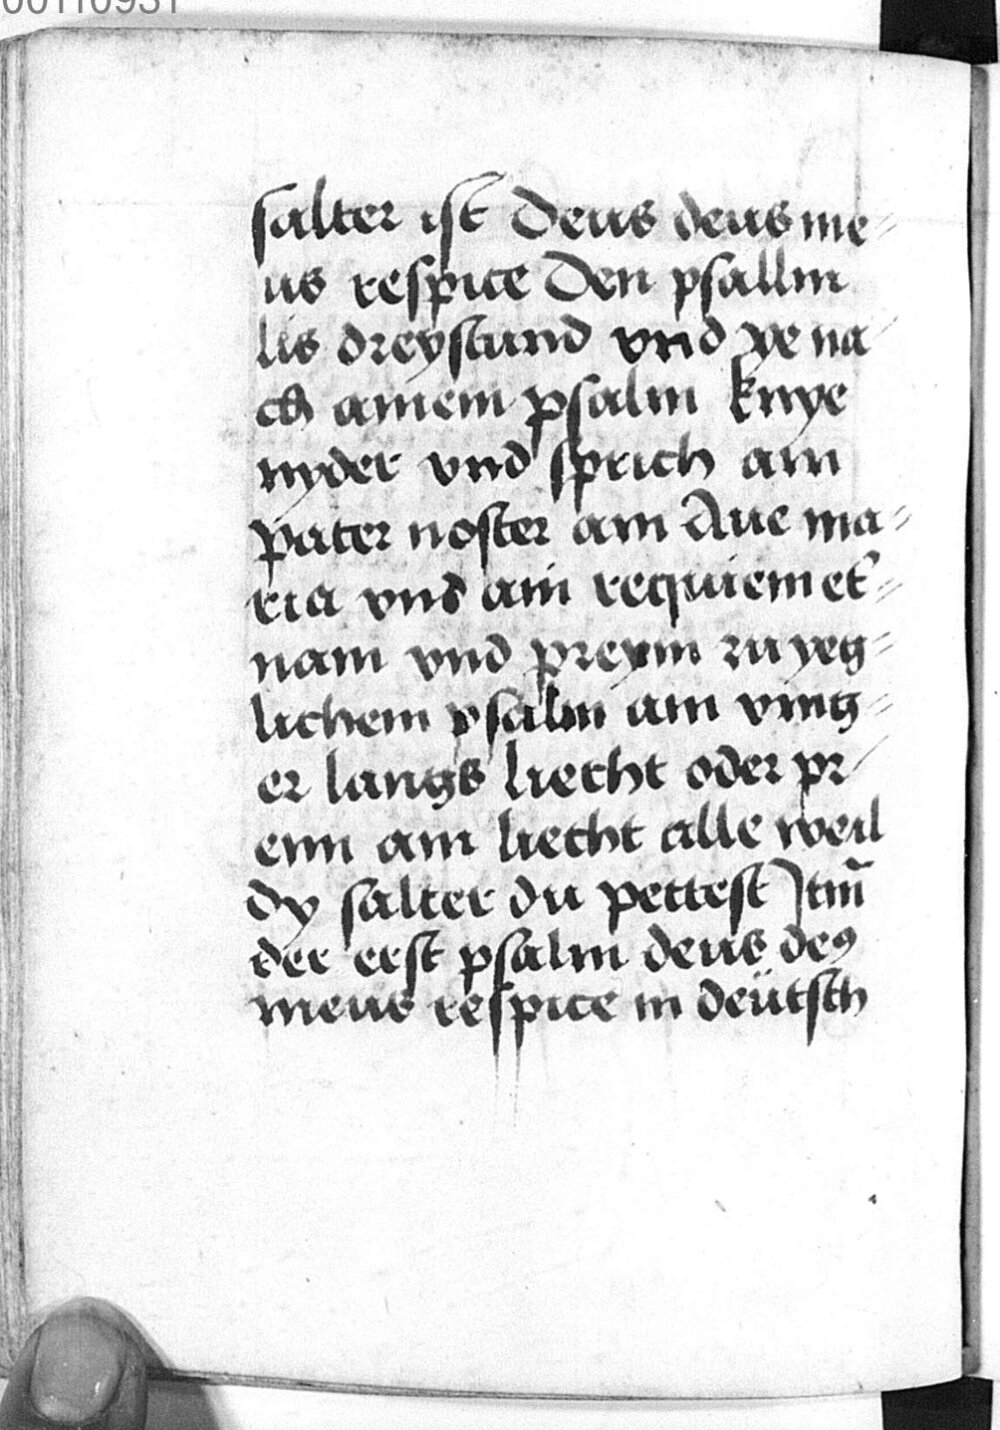 00110931
salter ist Deus deus me-
us respice Den psallm
lis dreystund vnd ye na-
ch ainem psalm knye
nyder vnd sprich ain
pater noster ain Aue ma-
ria vnd ain requiem et̾-
nam vnd preym zu yeg-
lichem psalm ain ving-
er langs liecht oder pr-
enn ain liecht alle weil
dy salter du pettest Itm̄
der erst psalm deus deꝯ
meus respice in deütsch